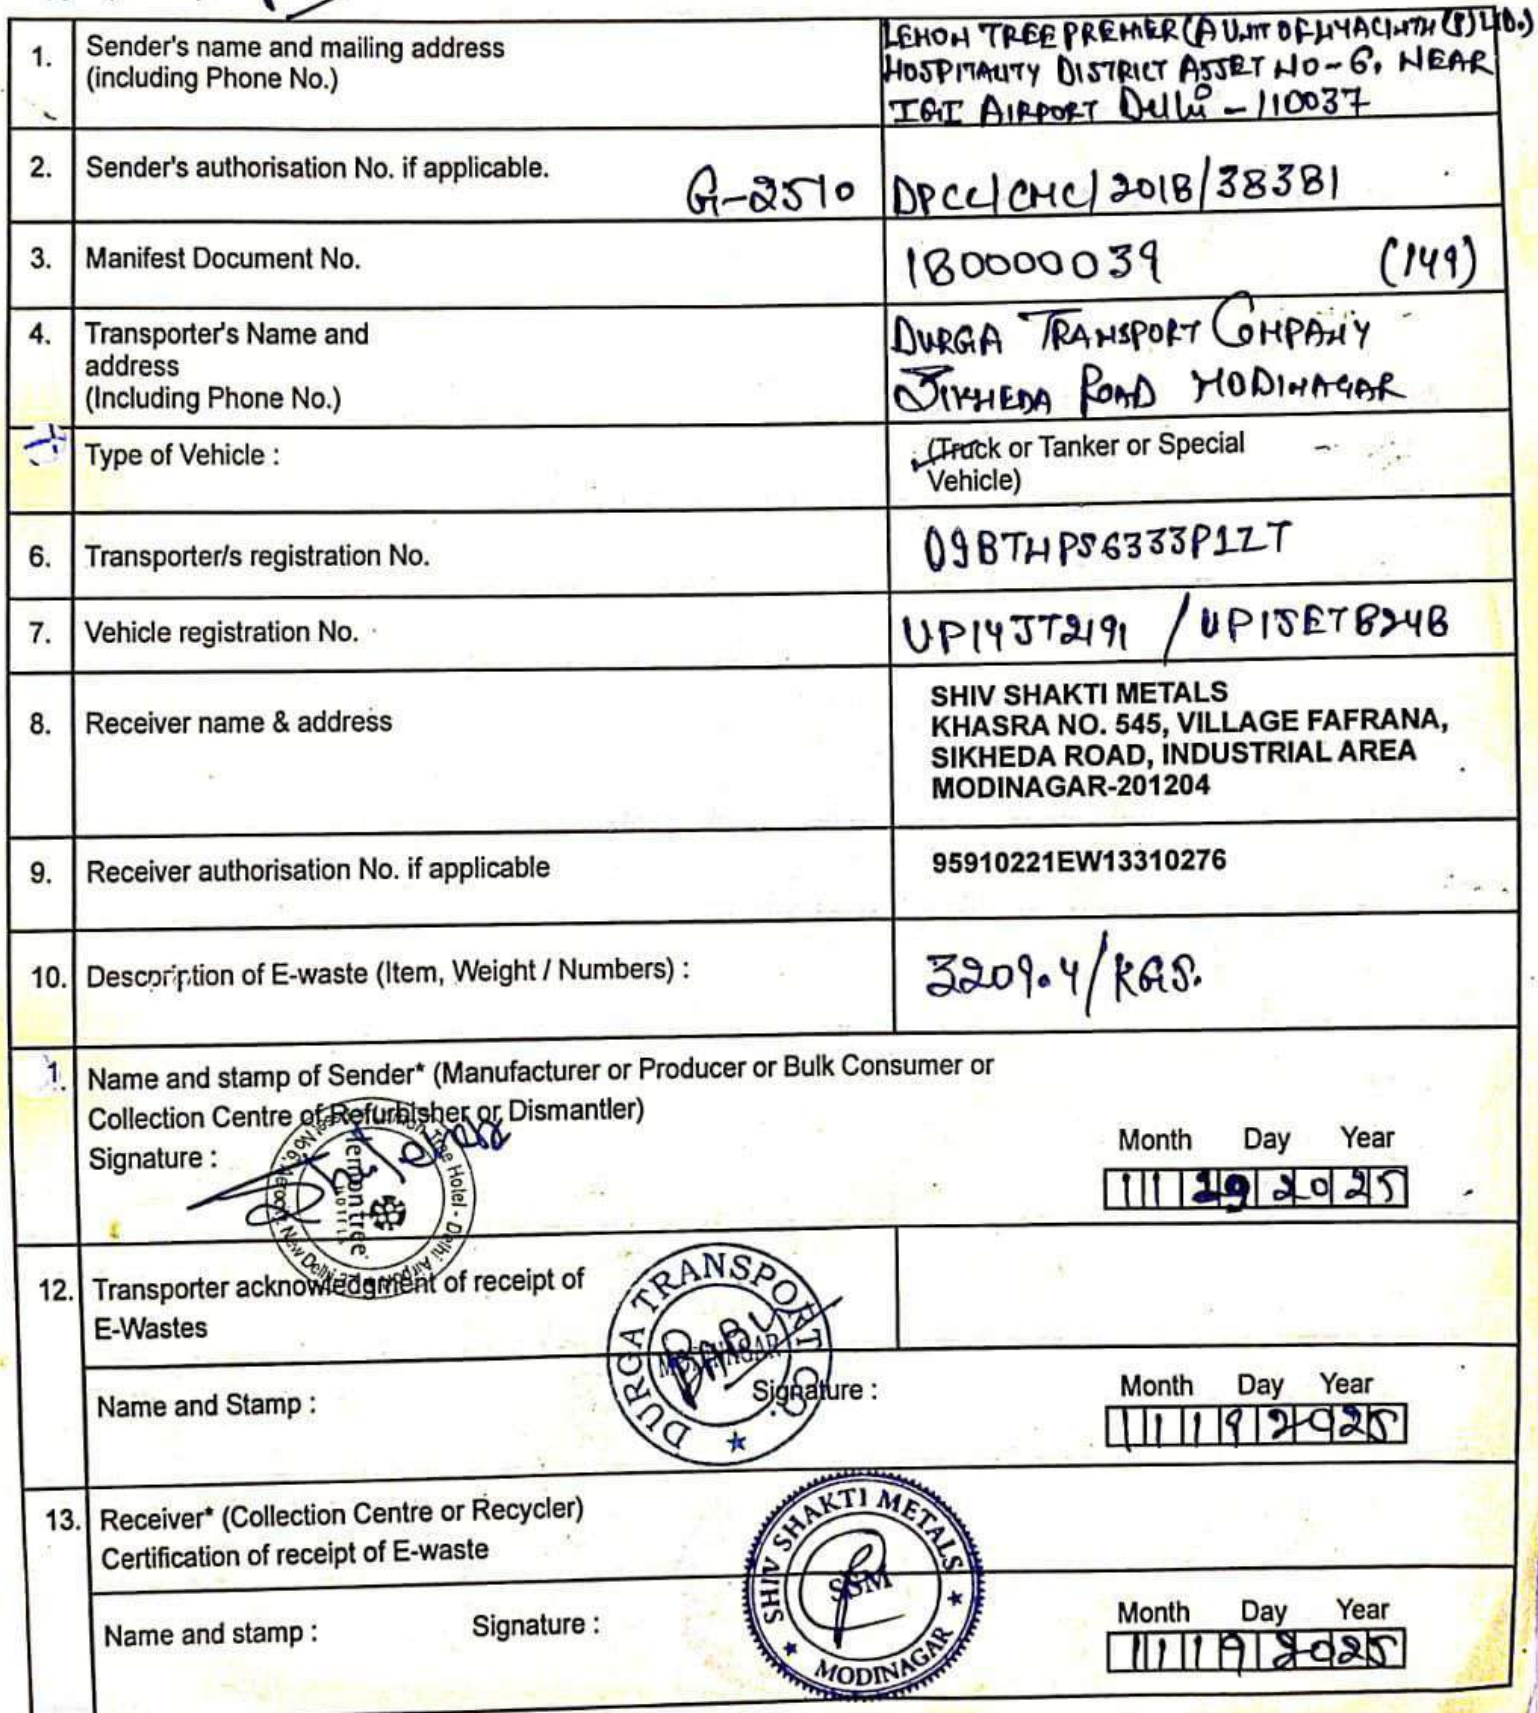 1. Sender's name and mailing address
(including Phone No.)
LEMON TREE PREMIER (A UNIT OF HYACINTH (P) LTD.)
HOSPITALITY DISTRICT ASSET NO-6, NEAR
IGI AIRPORT Delhi - 110037
2. Sender's authorisation No. if applicable.
G-2510 DPCC/CMC/2018/38381
3. Manifest Document No.
180000039 (149)
4. Transporter's Name and
address
(Including Phone No.)
DURGA TRANSPORT COMPANY
SIKHEDA ROAD MODINAGAR
Type of Vehicle :
(Truck or Tanker or Special
Vehicle)
6. Transporter/s registration No.
09BTHPS6333P1ZT
7. Vehicle registration No.
UP14JT2191 / UP15ET8248
8. Receiver name & address
SHIV SHAKTI METALS
KHASRA NO. 545, VILLAGE FAFRANA,
SIKHEDA ROAD, INDUSTRIAL AREA
MODINAGAR-201204
9. Receiver authorisation No. if applicable
95910221EW13310276
10. Description of E-waste (Item, Weight / Numbers) :
3209.4/KGS.
1. Name and stamp of Sender* (Manufacturer or Producer or Bulk Consumer or
Collection Centre of Refurbisher or Dismantler)
Signature :
lemon tree
HOTELS
Month Day Year
11 19 2025
12. Transporter acknowledgment of receipt of
E-Wastes
DURGA TRANSPORT CO.
MODINAGAR
BABU
Name and Stamp :
Signature :
Month Day Year
11 19 2025
13. Receiver* (Collection Centre or Recycler)
Certification of receipt of E-waste
SHIV SHAKTI METALS
SSM
MODINAGAR
Name and stamp :
Signature :
Month Day Year
11 19 2025